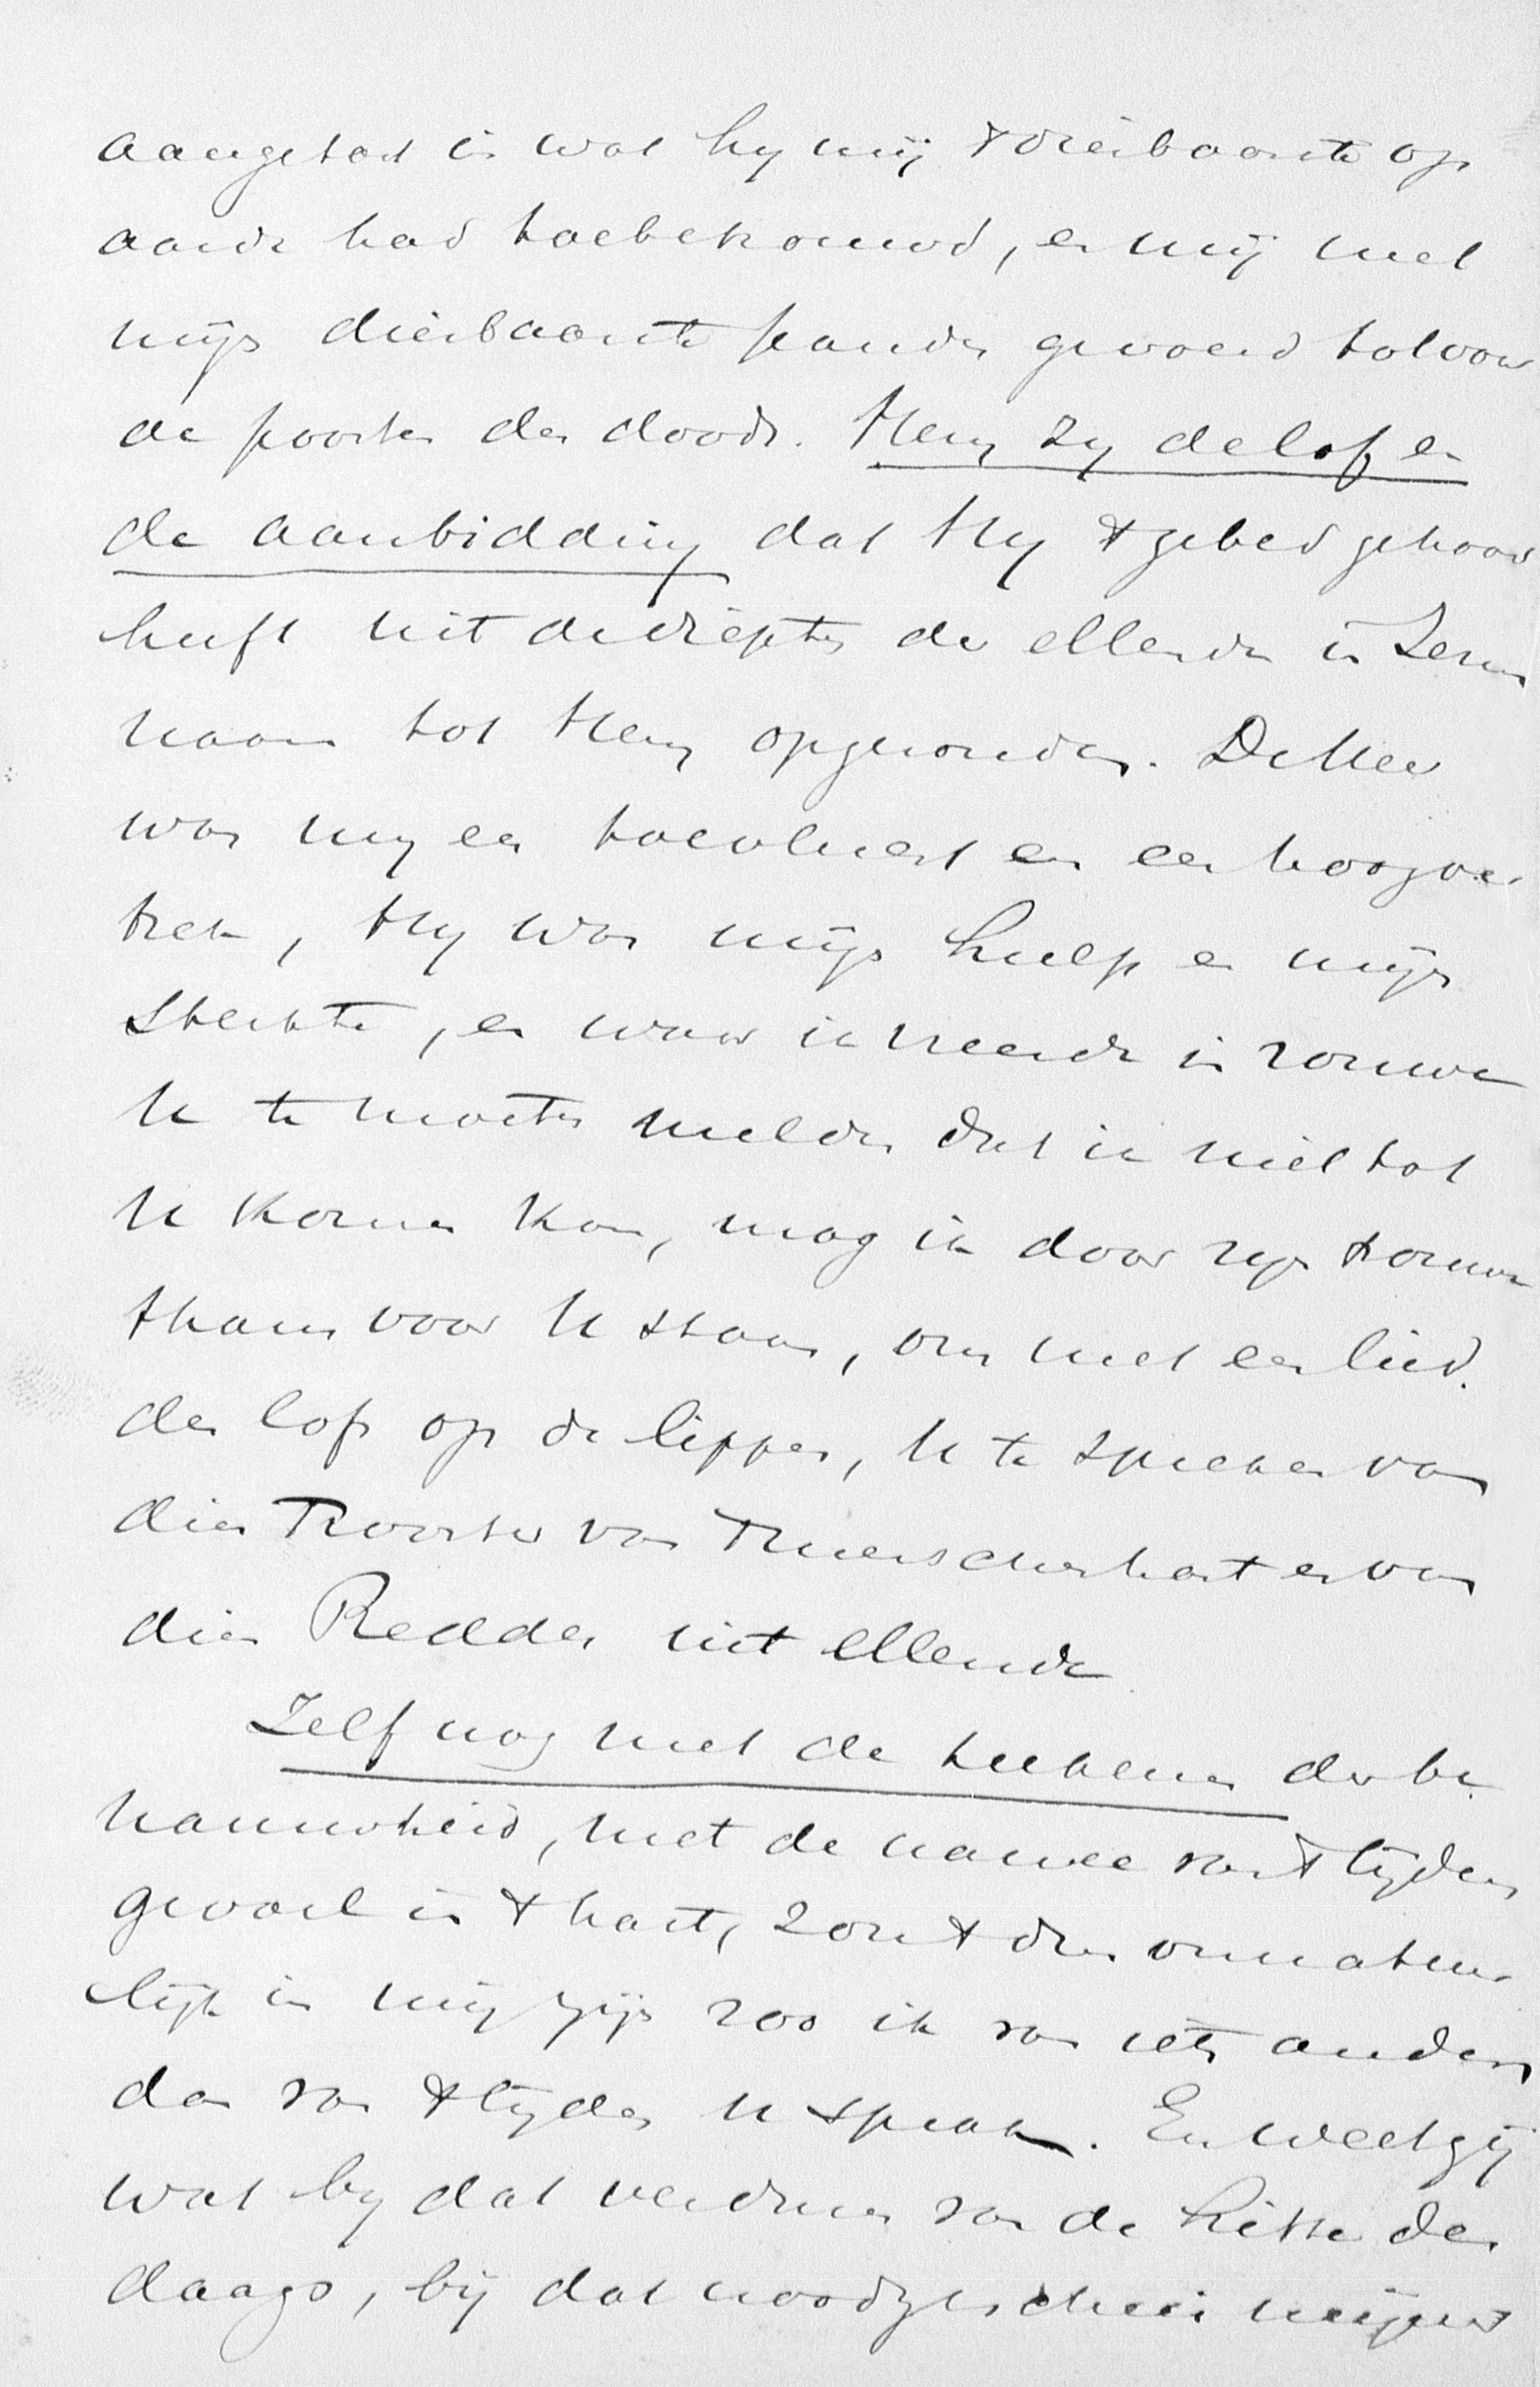 aangetast is wat hy mij 't dierbaarste op
aarde had toebetrouwd, en mij met
mijn dierbaarste panden gevoerd tot voor
de poorten des doods. Hem zy de lof en
de aanbidding dat Hy 't gebed gehoord
heeft uit de diepten der ellende in Jezus
naam tot Hem opgezonden. De Heer
was my een toevlucht en een hoogver
trek, Hy was mijn hulp en mijn
sterkte, en waar ik vreesde in rouwe
U te moeten melden dat ik niet tot
U komen kon, mag ik door zijn trouwe
thans voor U staan, om met een lied
des lofs op de lippen, U te spreken van
dien Trooster van 't menschenhart en van
dien Redder uit ellende
Zelf nog met de teekenen der be
nauwdheid, met de nawee van 't lijdens
gevoel in 't hart, zou 't dus onnatuur
lijk in mij zijn zoo ik van iets anders
dan van 't lyden U sprak. En weet gij
wat by dat verduren van de hitte des
daags, bij dat noodgeschrei mijner